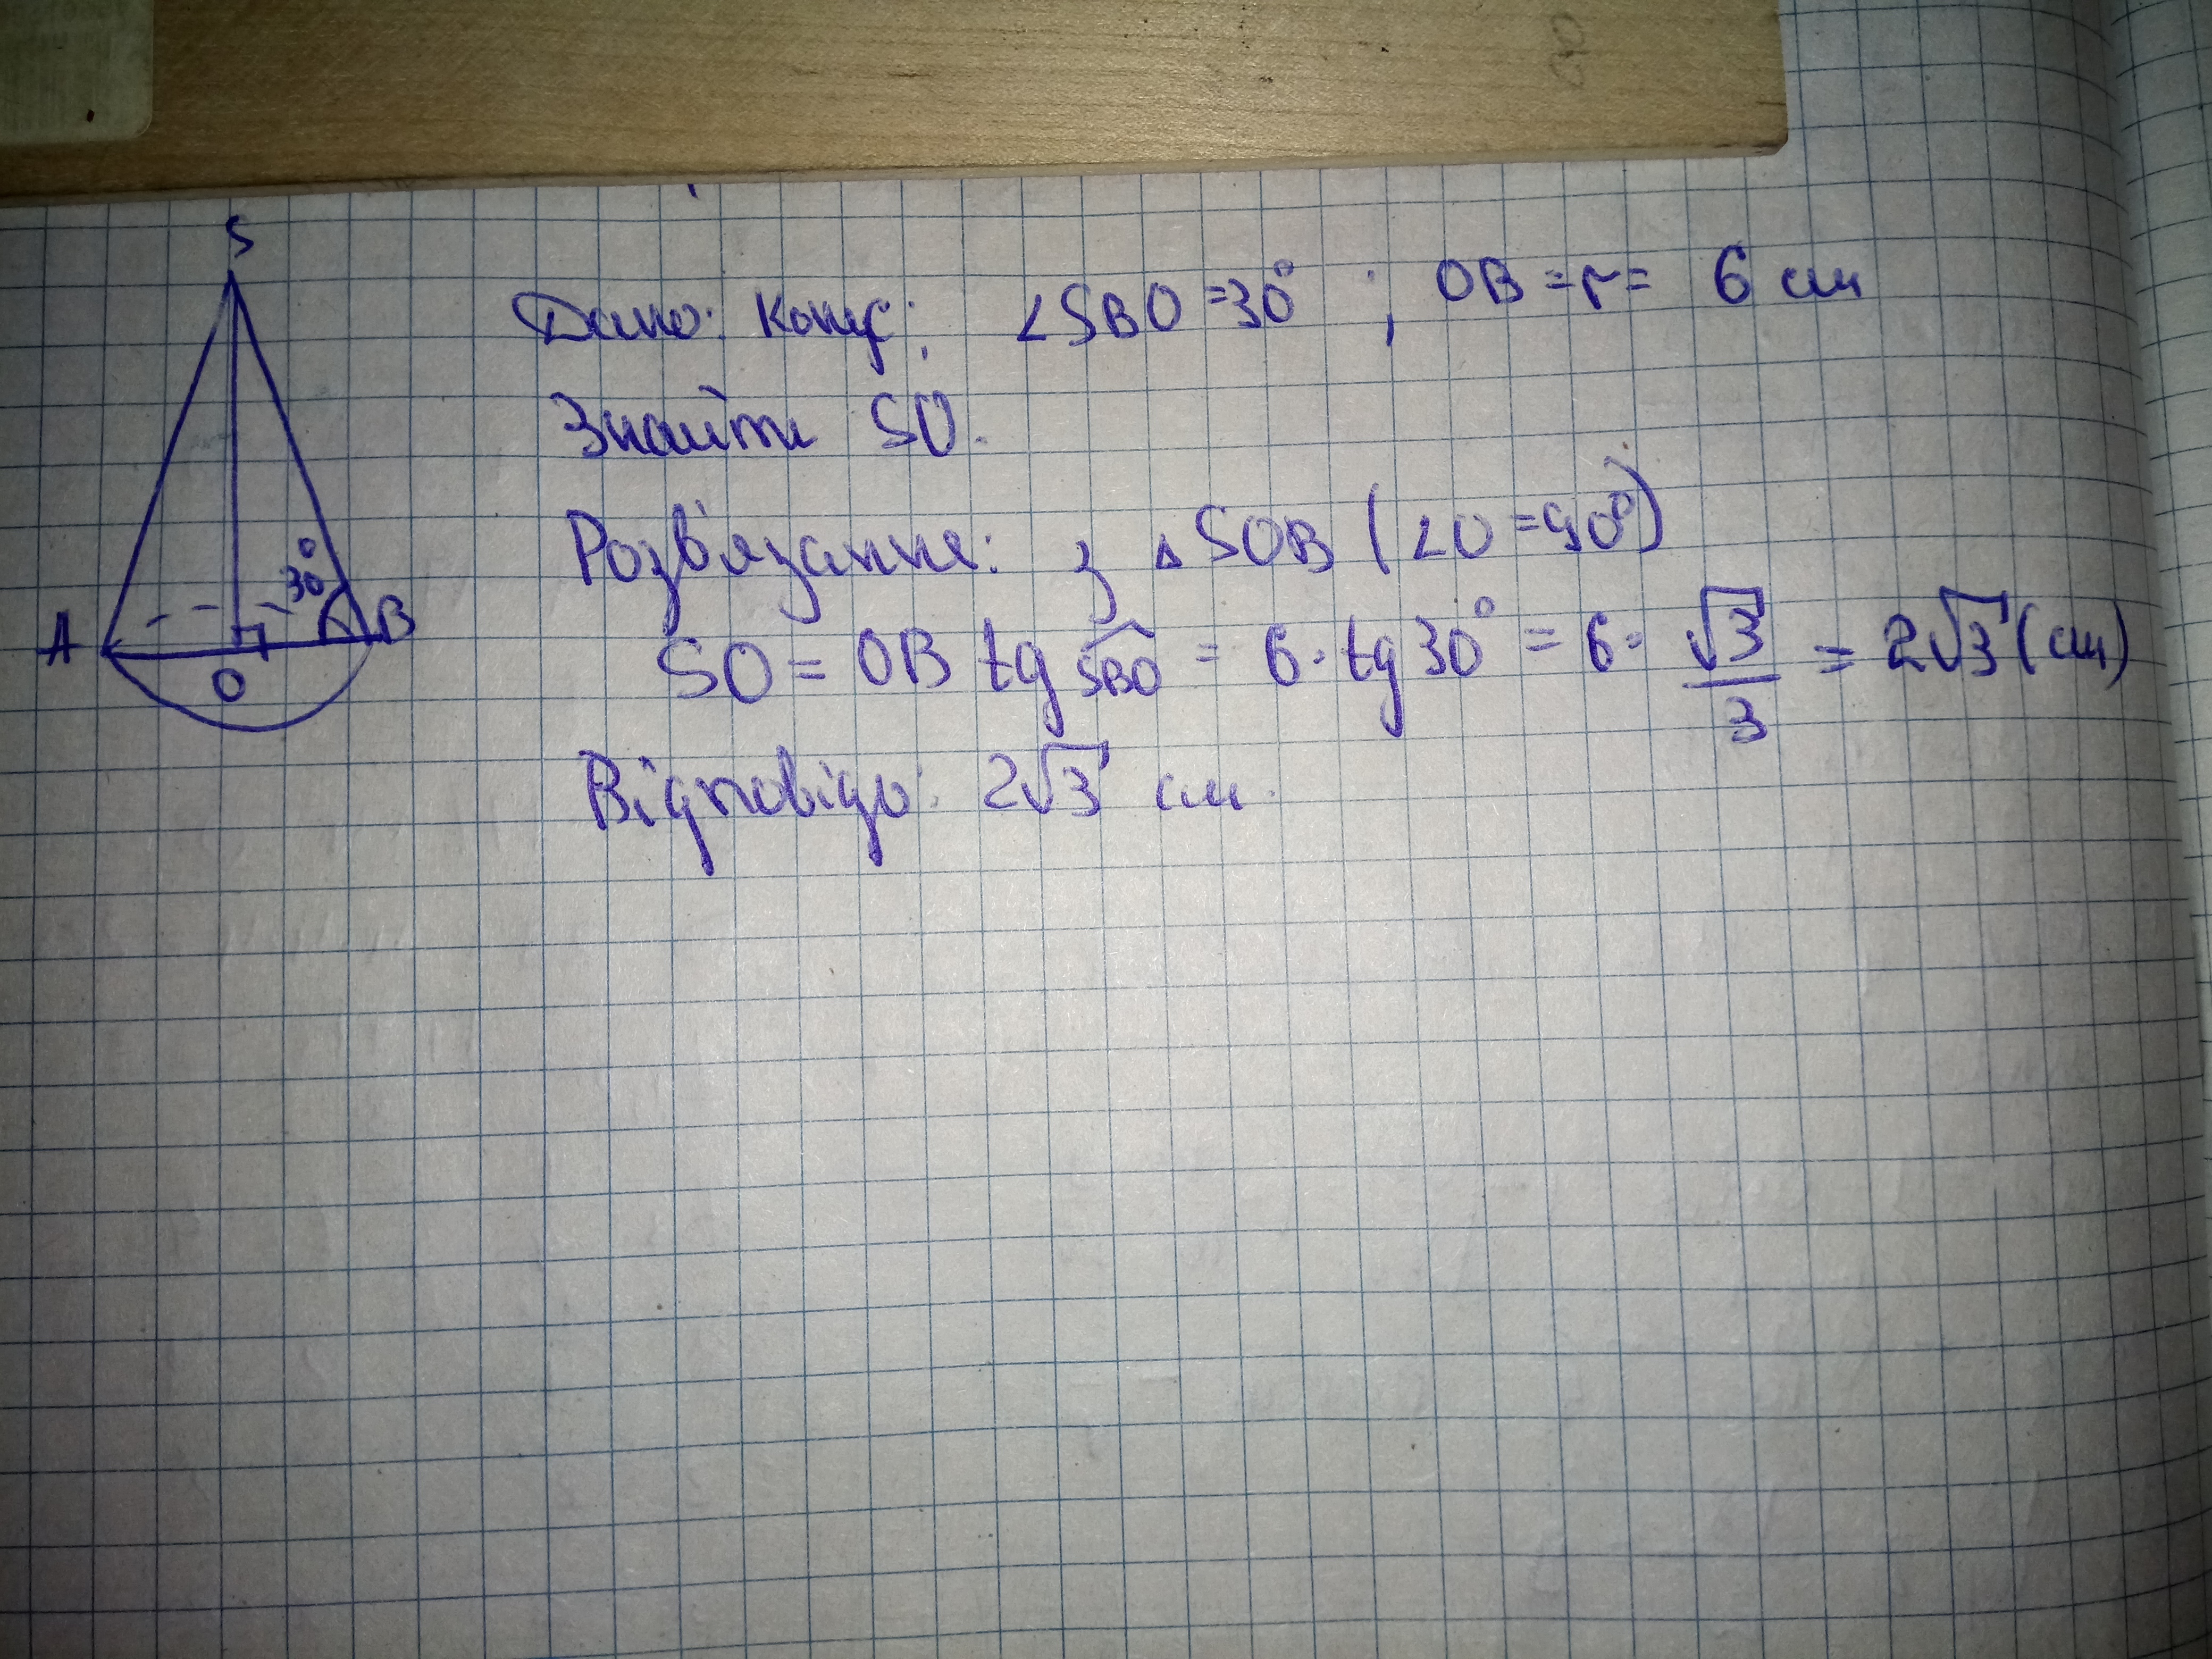 S
Дано: Конус; ∠SBO =30° ; OB = r = 6 см
Знайти SO.
Розв'язання: з △SOB (∠O =90°)
30°
A
B
O
SO = OB tg SBO = 6 · tg 30° = 6 · √3/3 = 2√3 (см)
Відповідь: 2√3 см.